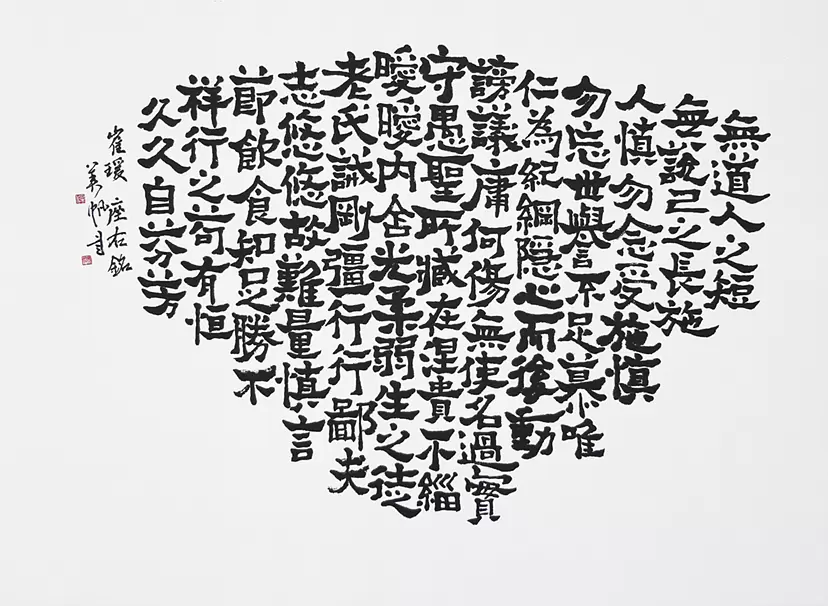 無道人之短
無說己之長施
人慎勿念受施慎
勿忘世譽不足慕唯
仁為紀綱隱心而後動
謗議庸何傷無使名過實
守愚聖所臧在涅貴不緇
曖曖內含光柔弱生之徒
老氏誡剛彊行行鄙夫
志悠悠故難量慎言
節飲食知足勝不
祥行之苟有恒
久久自芬芳
崔瑗座右銘